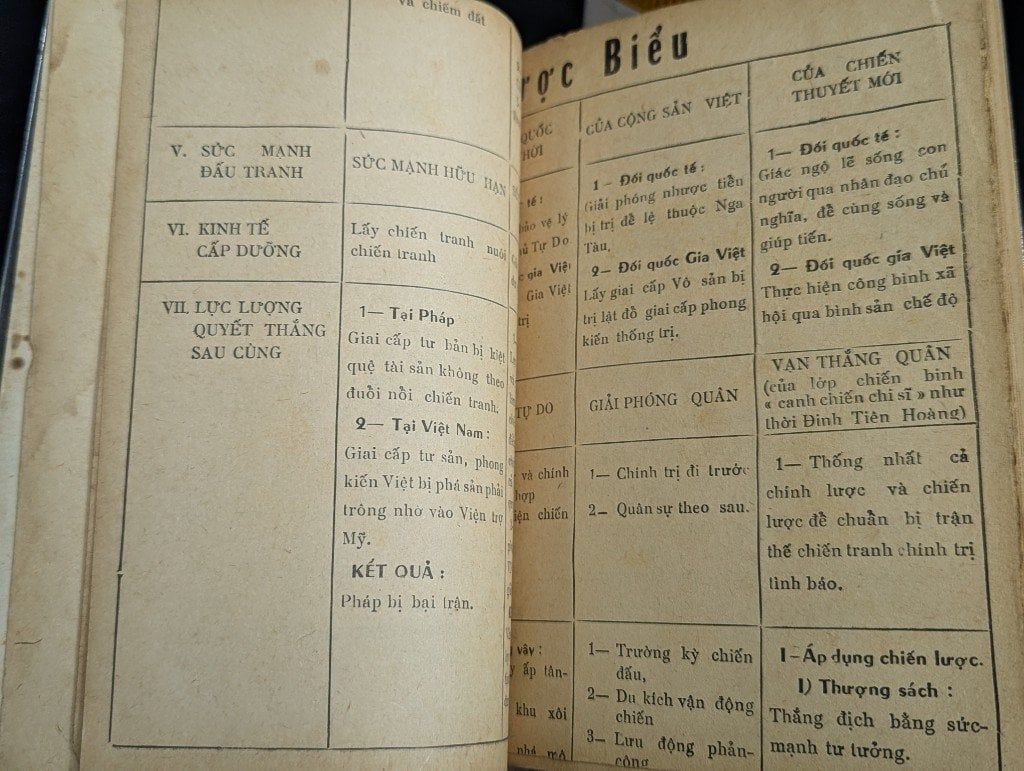 và chiếm đất
V. SỨC MẠNH
ĐẤU TRANH
SỨC MẠNH HỮU HẠN
VI. KINH TẾ
CẤP DƯỠNG
Lấy chiến tranh nuôi
chiến tranh
VII. LỰC LƯỢNG
QUYẾT THẮNG
SAU CÙNG
1— Tại Pháp
Giai cấp tư bản bị kiệt
quệ tài sản không theo
đuổi nổi chiến tranh.
2— Tại Việt Nam :
Giai cấp tư sản, phong
kiến Việt bị phá sản phải
trông nhờ vào Viện trợ
Mỹ.
KẾT QUẢ :
Pháp bị bại trận.
ược Biểu
QUỐC
tế :
bảo vệ lý
Tự Do.
gia Việt
Gia Việt
trị
TỰ DO
và chính
hợp
chiến
vậy :
ấp tân-
khu xôi
CỦA CỘNG SẢN VIỆT
1 - Đối quốc tế :
Giải phóng nhược tiền
bị trị để lệ thuộc Nga
Tàu,
2— Đối quốc Gia Việt
Lấy giai cấp Vô sản bị
trị lật đổ giai cấp phong
kiến thống trị.
GIẢI PHÓNG QUÂN
1— Chính trị đi trước
2— Quân sự theo sau.
1— Trường kỳ chiến
đấu,
2— Du kích vận động
chiến
3— Lưu động phản-
công
CỦA CHIẾN
THUYẾT MỚI
1— Đối quốc tế :
Giác ngộ lẽ sống con
người qua nhân đạo chủ
nghĩa, để cùng sống và
giúp tiến.
2— Đối quốc gia Việt
Thực hiện công bình xã
hội qua bình sản chế độ
VẠN THẮNG QUÂN
(của lớp chiến binh
« canh chiến chi sĩ » như
thời Đinh Tiên Hoàng)
1— Thống nhất cả
chính lược và chiến
lược để chuẩn bị trận
thế chiến tranh chính trị
tình báo.
I – Áp dụng chiến lược.
I) Thượng sách :
Thắng địch bằng sức-
mạnh tư tưởng.